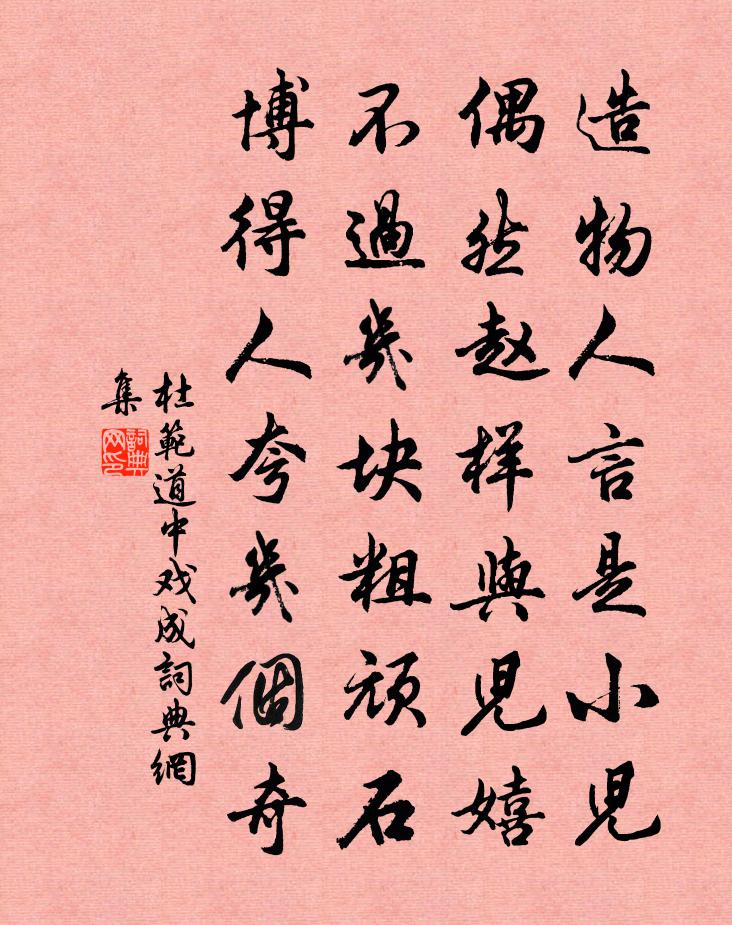 造物人言是小兒
偶然赵样與兒嬉
不過幾块粗顽石
博得人夸幾個奇
杜範道中戏成詞典網
集
詞典
网印